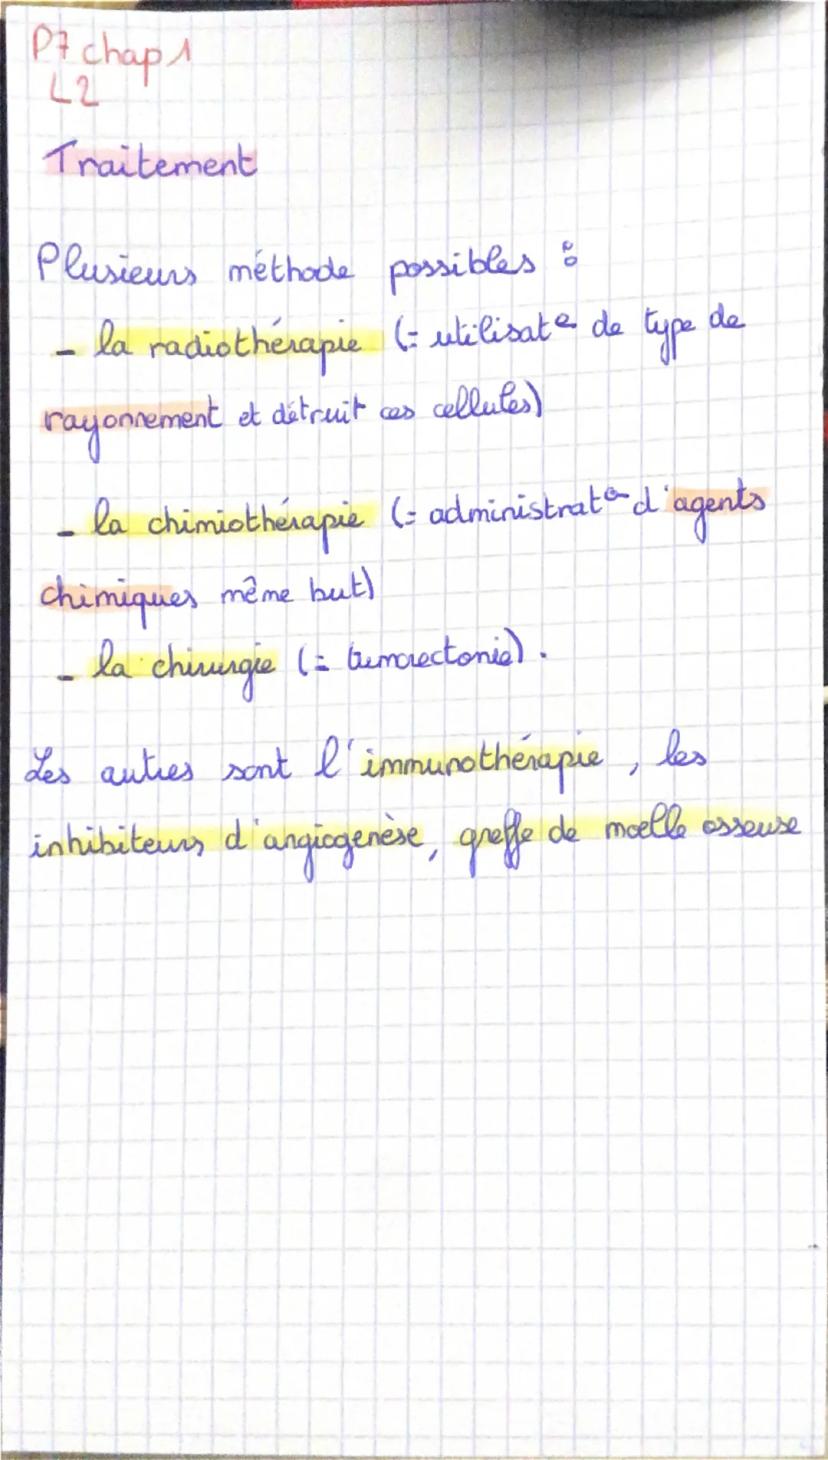 P7 chap 1
L2
Traitement
Plusieurs méthode possibles :
- la radiothérapie (= utilisat° de type de
rayonnement et détruit ces cellules)
- la chimiothérapie (= administrat° d'agents
chimiques même but)
- la chirurgie (= tumorectomie).
Les autres sont l'immunothérapie, les
inhibiteurs d'angiogenèse, greffe de moelle osseuse